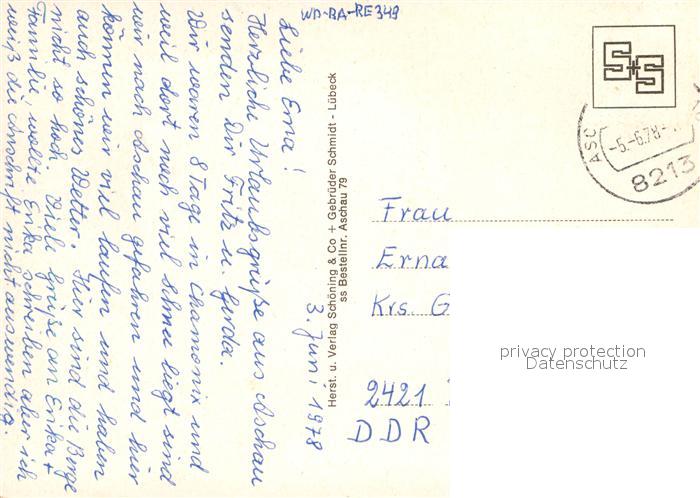 WD-BA-RE349
3. Juni 1978
Liebe Erna!
Herzliche Urlaubsgrüße aus Aschau
senden Dir Fritz u. Gerda.
Wir waren 8 Tage in Chamonix und
weil dort noch viel Schnee liegt sind
wir nach Aschau gefahren und hier
können wir viel laufen und haben
auch schönes Wetter. Hier sind die Berge
nicht so hoch. Viele Grüße an Erika +
Familie, wollte Erika schreiben aber ich
weiß die Anschrift nicht auswendig.
Herst. u. Verlag Schöning & Co + Gebrüder Schmidt - Lübeck
ss Bestellnr. Aschau 79
S+S
ASC
-5.-6.78-
8213
Frau
Erna
Krs. G
2421
DDR
privacy protection
Datenschutz